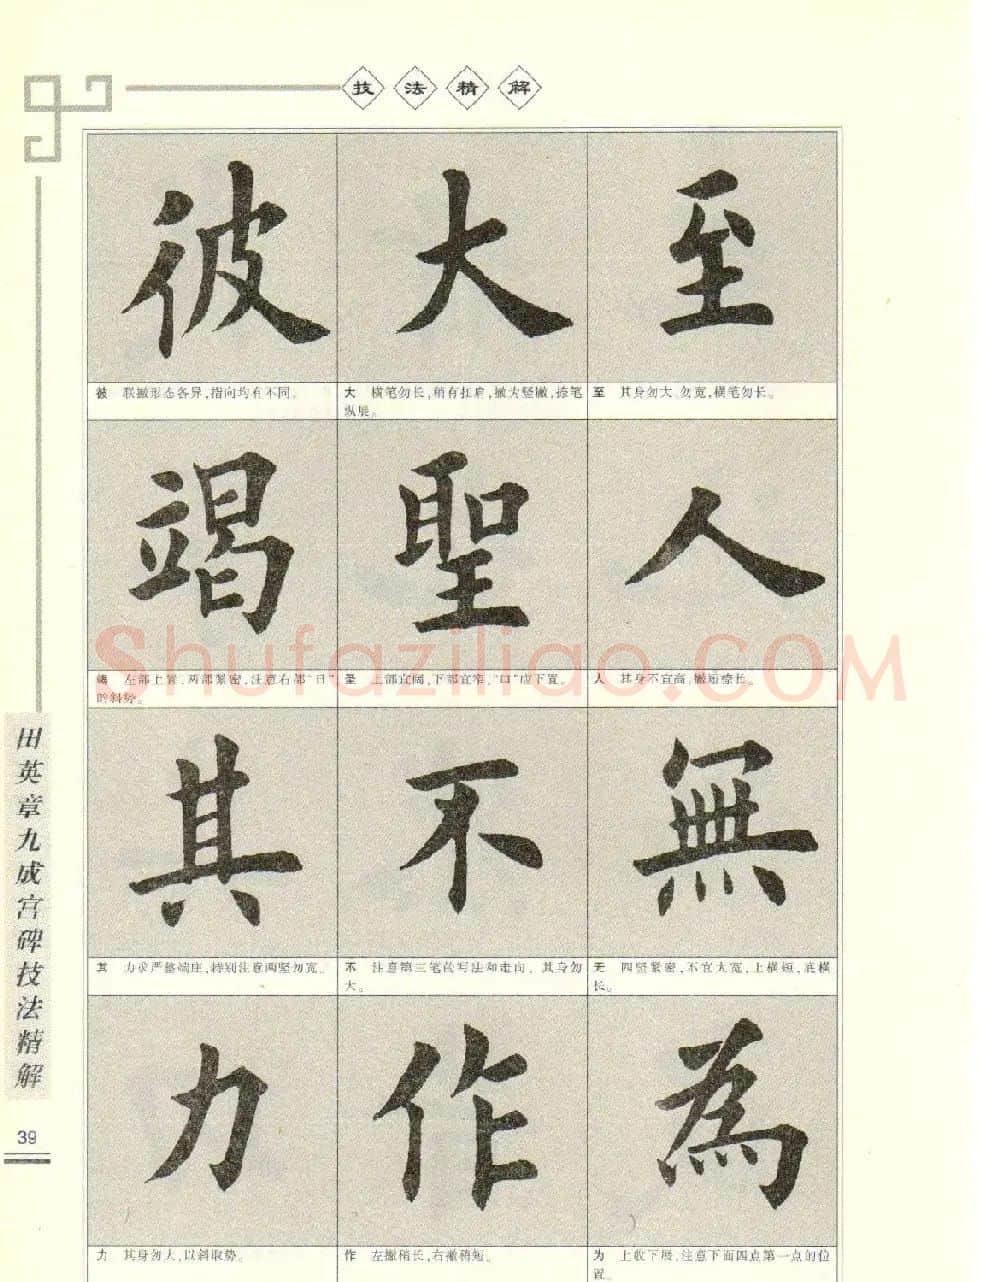 技法精解
彼 大 至
彼 联撇形态各异，指向均有不同。
大 横笔勿长，稍有扛肩，撇为竖撇，捺笔
纵展。
至 其身勿大、勿宽，横笔勿长。
竭 聖 人
竭 左部上置，两部紧密，注意右部“日”
的斜势。
圣 上部宜阔，下部宜窄，“口”应下置。
人 其身不宜高，撇短捺长。
其 不 無
其 力求严整端庄，特别注意两竖勿宽。
不 注意第三笔的写法和走向，其身勿
大。
无 四竖紧密，不宜太宽，上横短，底横
长。
力 作 為
力 其身勿大，以斜取势。
作 左撇稍长，右撇稍短。
为 上收下展，注意下面四点第一点的位
置。
田英章九成宫碑技法精解
39
Shufaziliao.COM